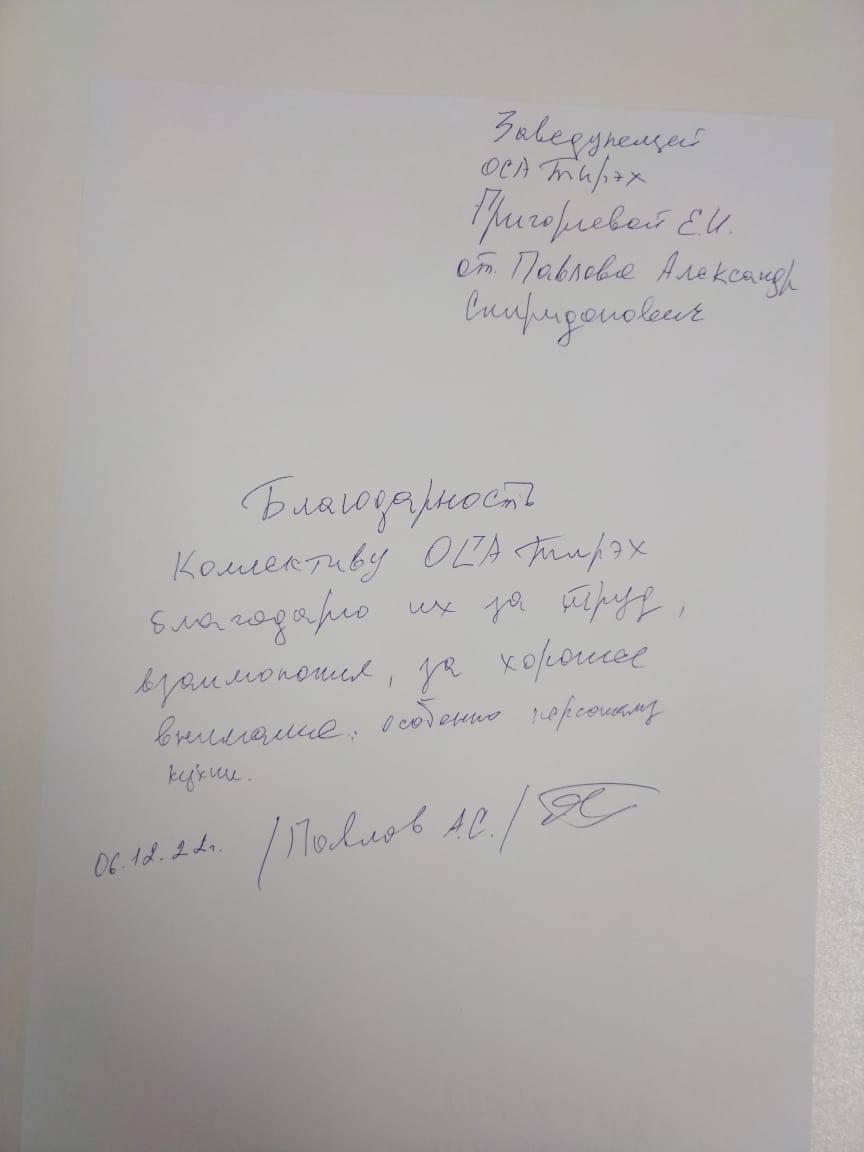 Заведующей
ОСА Тирэх
Григорьевой Е.И.
от Павлова Александр
Спиридонович
Благодарность
Коллективу ОСА Тирэх
благодарю их за труд,
взаимопония, за хорошее
внимание. особенно персоналу
кухни.
06.12.22г. /Павлов А.С./